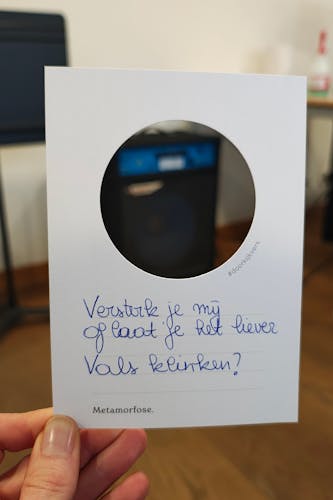 #doorkijkvers
Versterk je mij
of laat je het liever
Vals klinken?
Metamorfose.